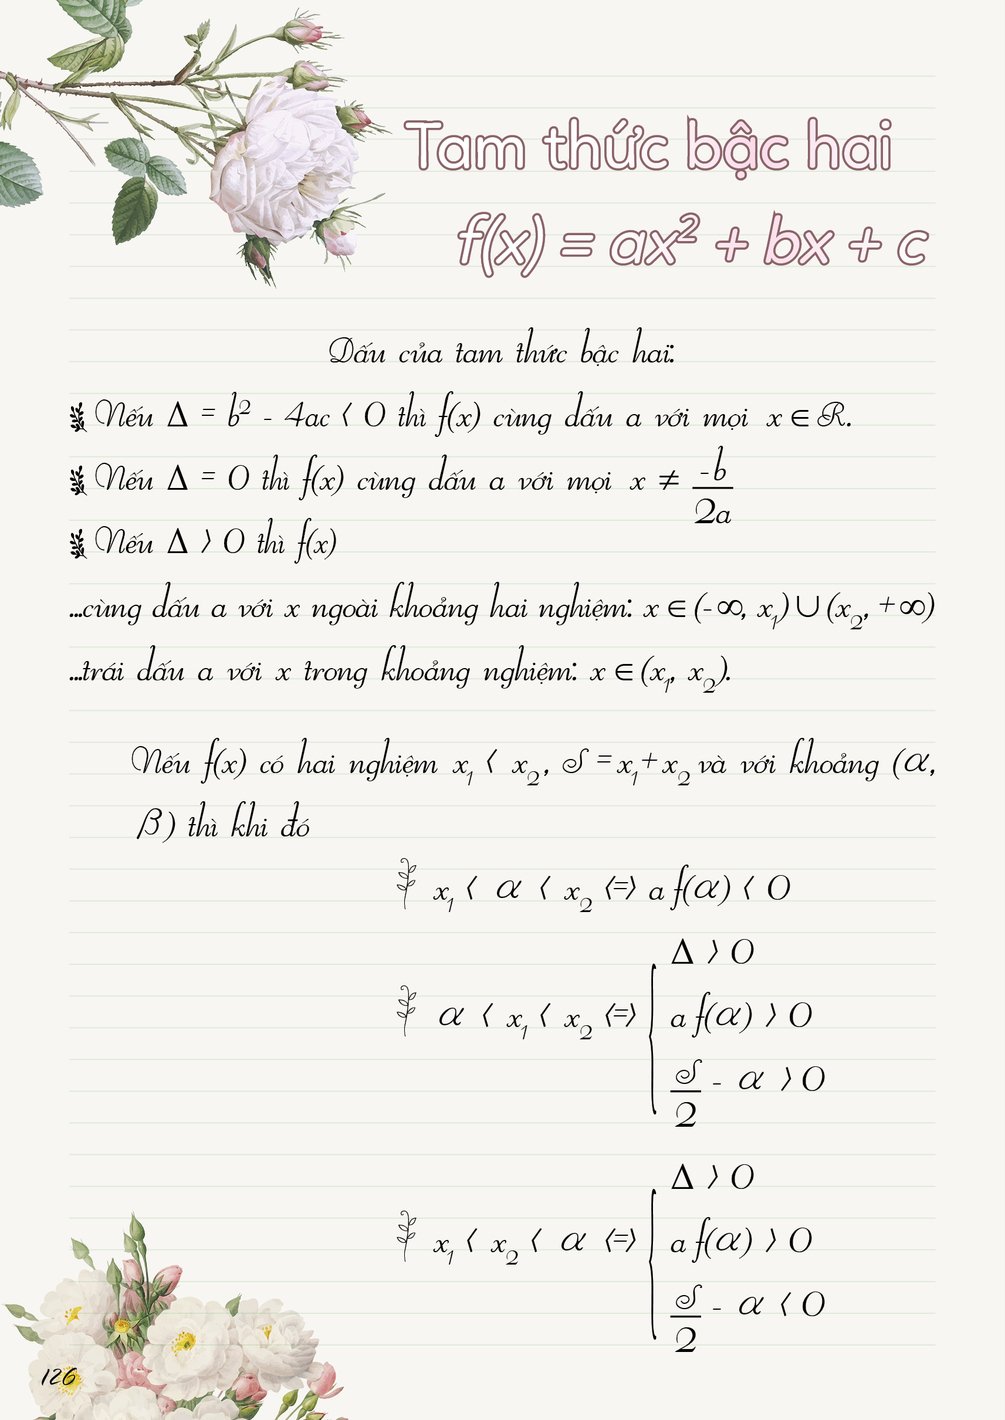 Tam thức bậc hai
f(x) = ax² + bx + c
Dấu của tam thức bậc hai:
Nếu Δ = b² - 4ac < 0 thì f(x) cùng dấu a với mọi x ∈ R.
Nếu Δ = 0 thì f(x) cùng dấu a với mọi x ≠ -b/2a
Nếu Δ > 0 thì f(x)
...cùng dấu a với x ngoài khoảng hai nghiệm: x ∈ (-∞, x₁) ∪ (x₂, +∞)
...trái dấu a với x trong khoảng nghiệm: x ∈ (x₁, x₂).
Nếu f(x) có hai nghiệm x₁ < x₂, S = x₁ + x₂ và với khoảng (α,
β) thì khi đó
x₁ < α < x₂ <=> a f(α) < 0
Δ > 0
α < x₁ < x₂ <=> { a f(α) > 0
S/2 - α > 0
Δ > 0
x₁ < x₂ < α <=> { a f(α) > 0
S/2 - α < 0
126